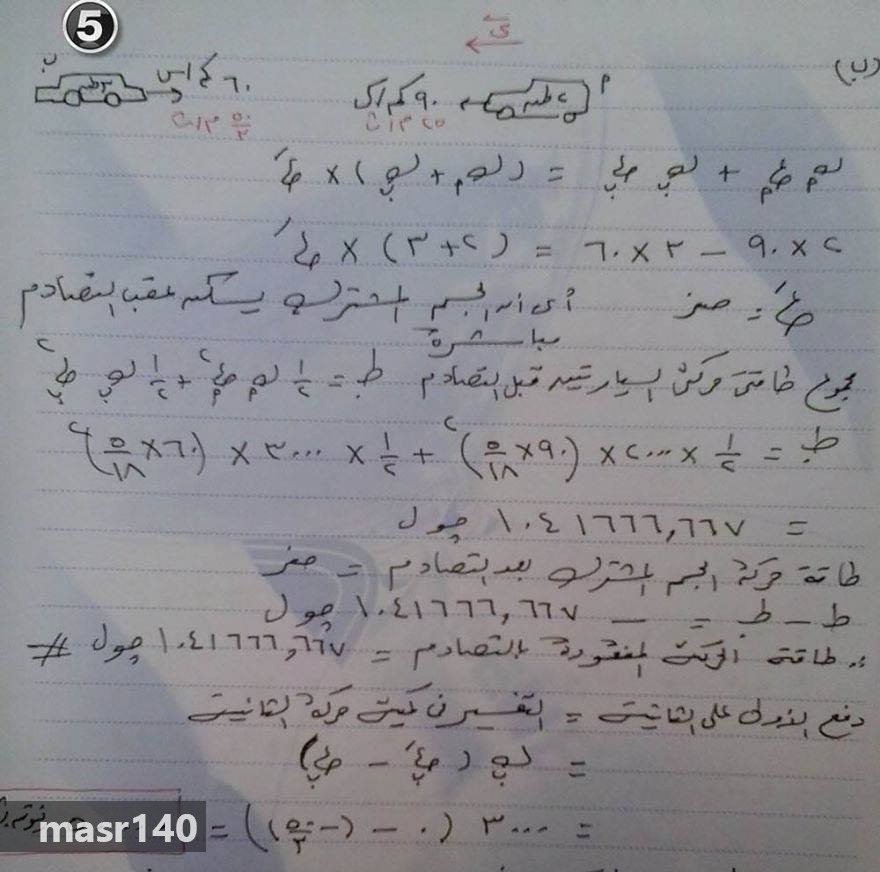 5
ى
(ب)
ب ٣ طن ٦٠ كم/س ٩٠ كم/س ٢ طن م
٥٠/٣ م/ث ٢٥ م/ث
ك م ع م + ك ب ع ب = (ك م + ك ب) × ع َ
٢ × ٩٠ − ٣ × ٦٠ = (٢ + ٣) × ع َ
ع َ = صفر أى أن الجسم المشترك يسكن عقب التصادم
مباشرة
مجموع طاقتى حركتى السيارتين قبل التصادم ط. = ١/٢ ك م ع م ٢ + ١/٢ ك ب ع ب ٢
ط. = ١/٢ × ٢٠٠٠ × (٩٠ × ٥/١٨)٢ + ١/٢ × ٣٠٠٠ × (٦٠ × ٥/١٨)٢
= ١٠٤١٦٦٦,٦٦٧ چول
طاقة حركة الجسم المشترك بعد التصادم = صفر
ط − ط. = − ١٠٤١٦٦٦,٦٦٧ چول
∴ طاقة الحركة المفقودة بالتصادم = ١٠٤١٦٦٦,٦٦٧ چول #
دفع الأولى على الثانية = التغير فى كمية حركة الثانية
= ك ب (ع َ ب − ع ب)
= ٣٠٠٠ (٠ − (−٥٠/٣)) =
masr140